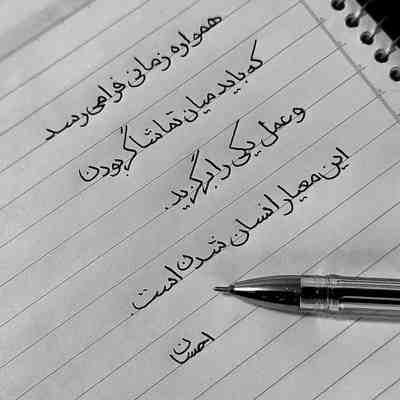 همواره زمانی فرا می رسد
که باید میان تماشاگر بودن
و عمل یکی را برگزید.
این معیار انسان شدن است.
احسان